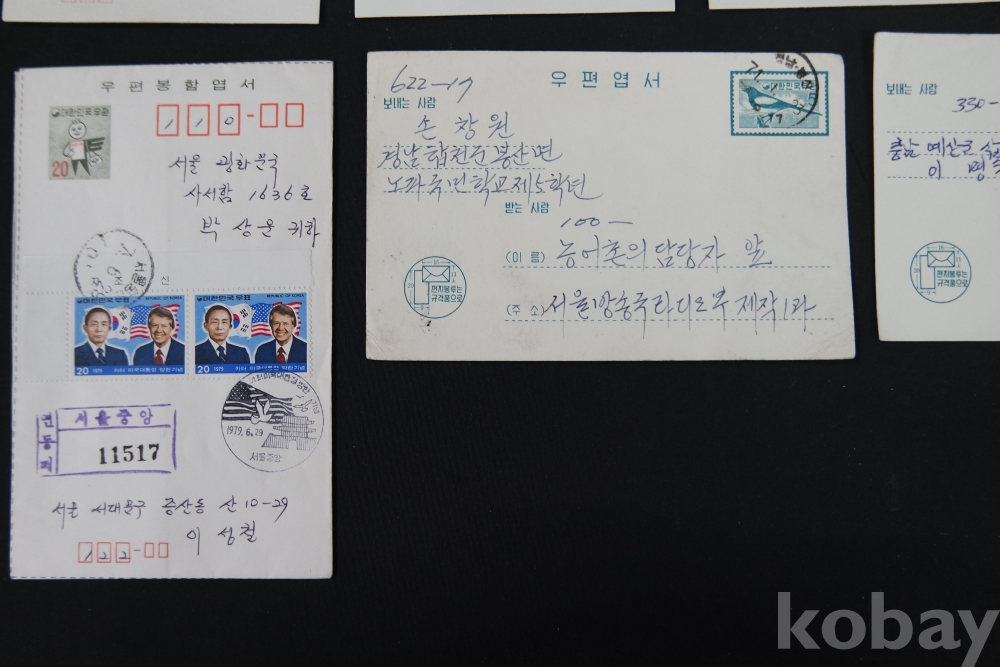 우편봉함엽서
대한민국우표
20
110-
서울 광화문국
사서함 1636호
박상윤 귀하
대한민국우표 REPUBLIC OF KOREA
20 1979 카터 미국대통령 방한기념
대한민국우표 REPUBLIC OF KOREA
20 1979 카터 미국대통령 방한기념
1979. 6. 29
서울중앙
서울중앙
11517
서울 서대문구 증산동 산 10-29
이성철
122-
우편엽서
622-17
보내는 사람
손창원
경남 합천군 봉산면
노파국민학교 제5학년
대한민국
받는 사람
100-
(이름) 농어촌의 담당자 앞
(주소) 서울방송국 라디오부 제작1과
편지봉투는
규격품으로
보내는 사람
330-
충남 예산군
이명
편지봉투는
규격품으로
kobay